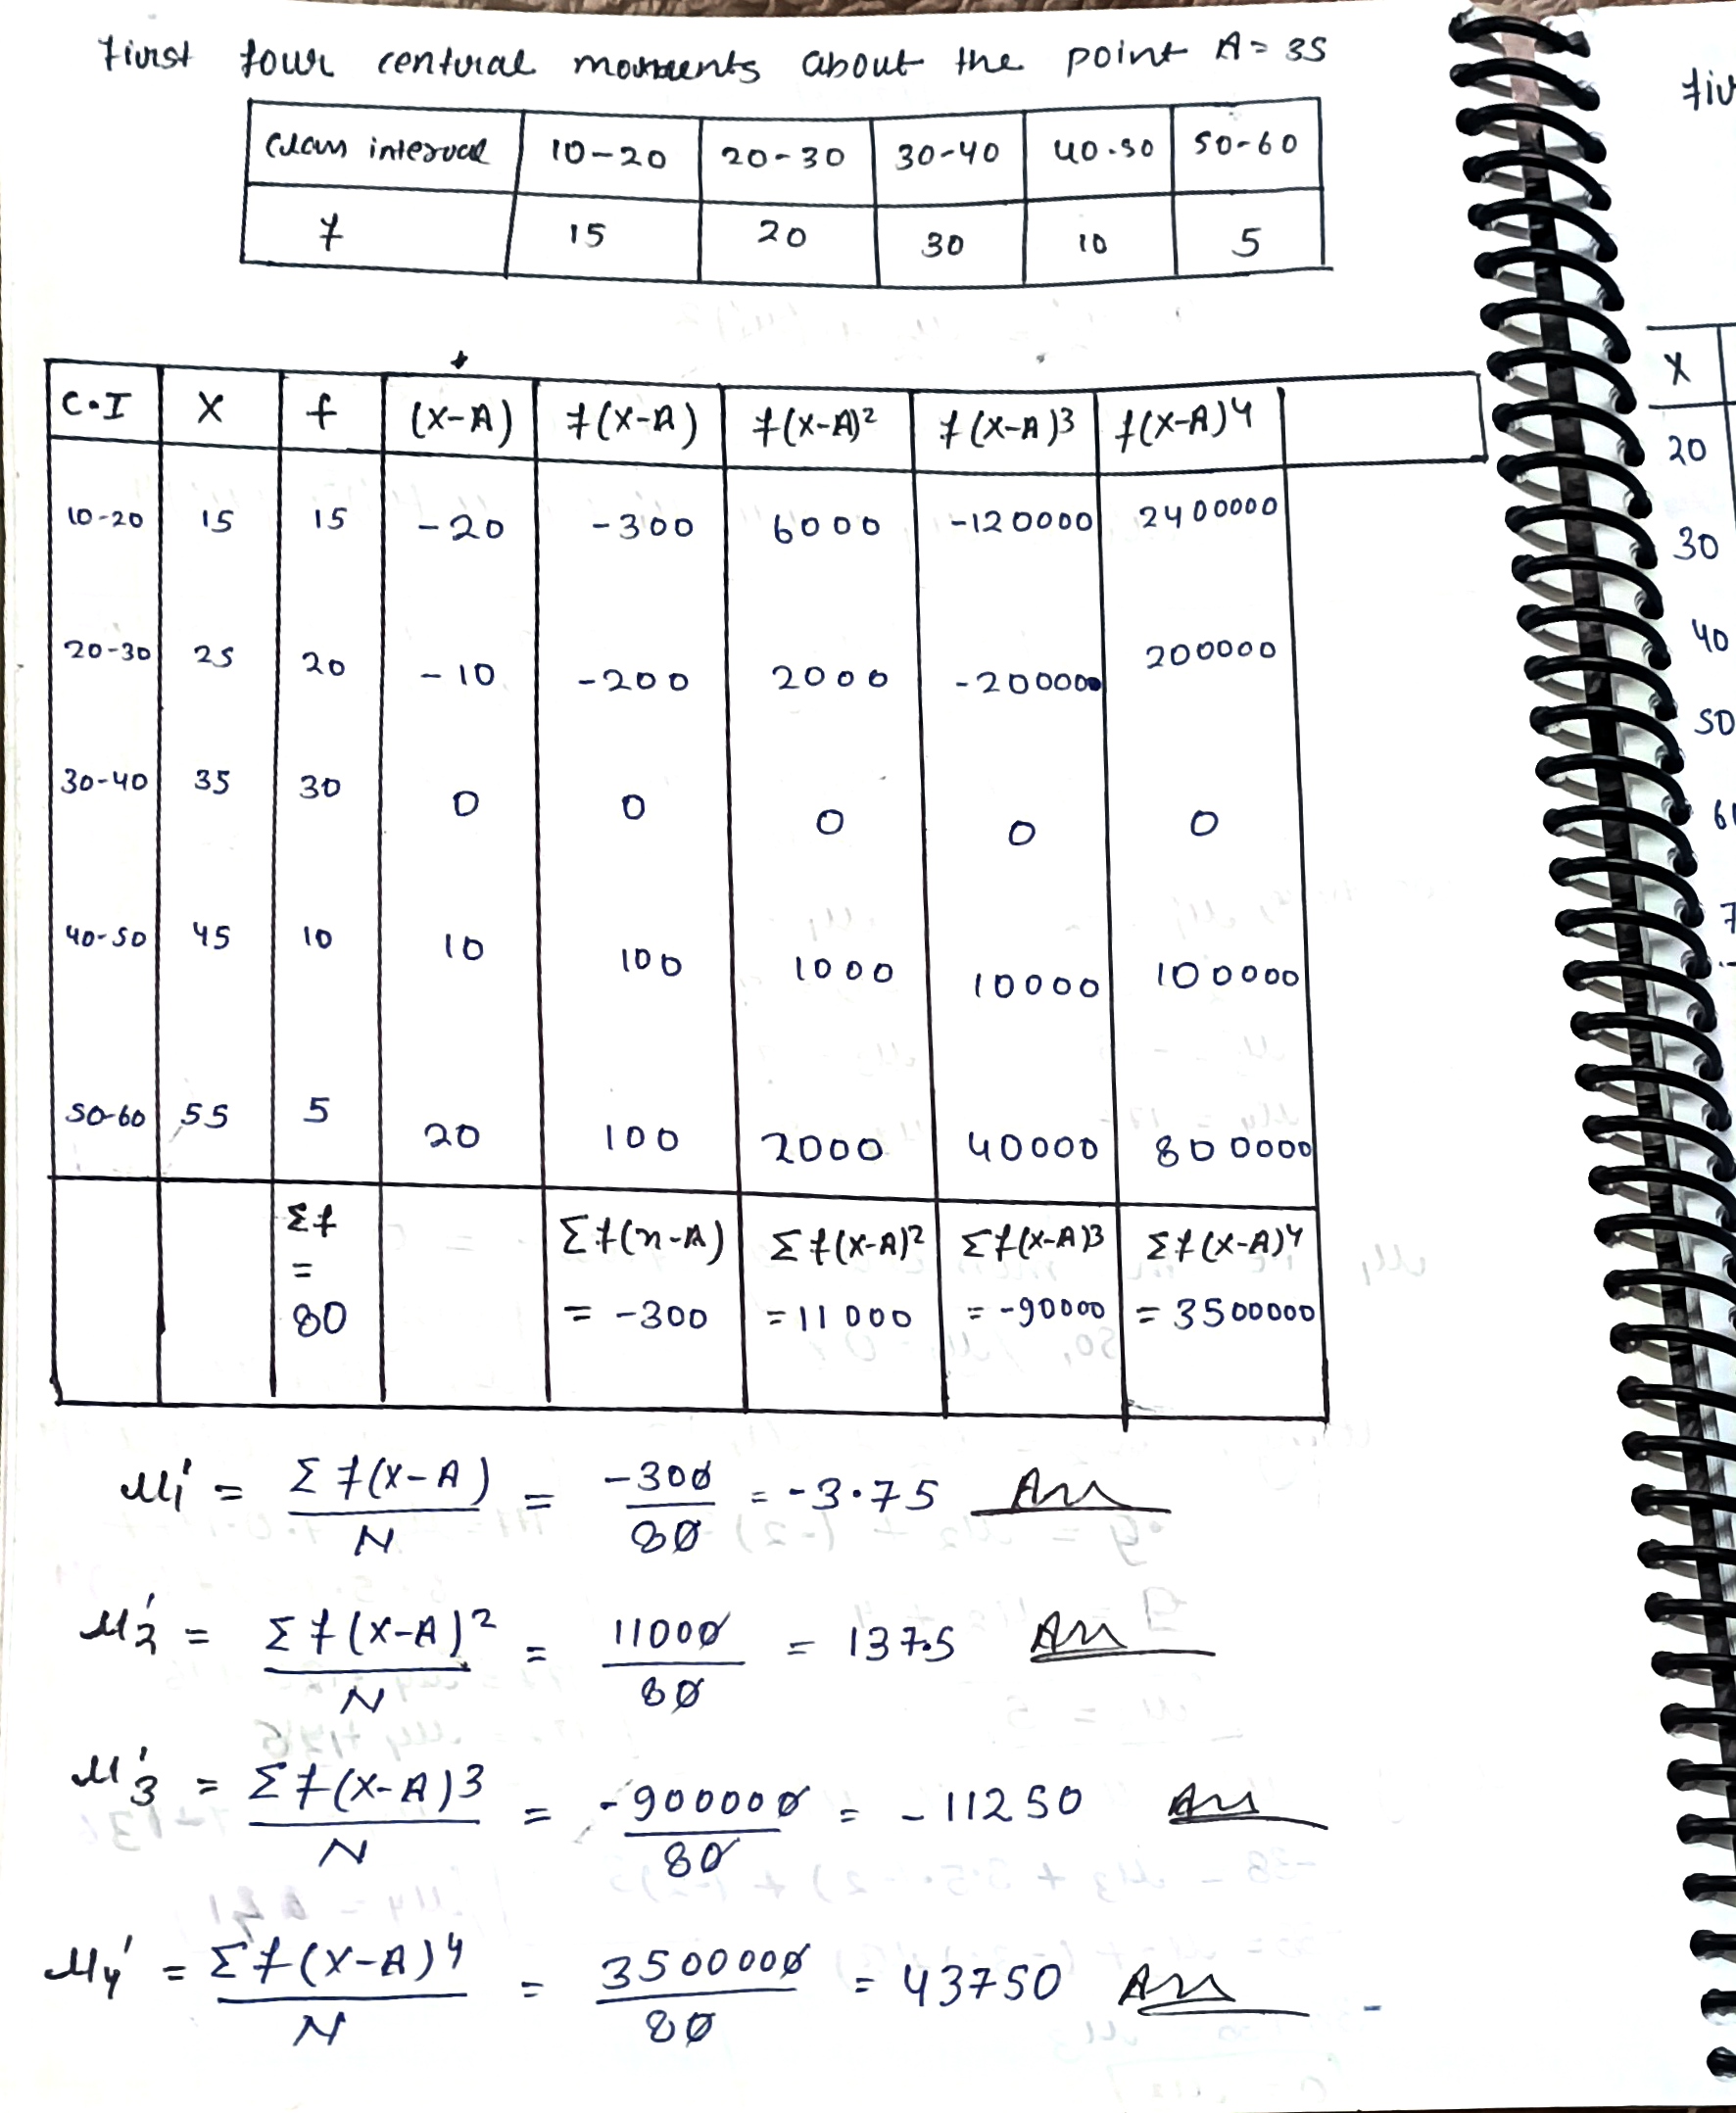 First four central moments about the point A = 35
Class interval 10-20 20-30 30-40 40-50 50-60
f 15 20 30 10 5
C.I X f (X-A) f(X-A) f(X-A)² f(X-A)3 f(X-A)4
10-20 15 15 -20 -300 6000 -120000 2400000
20-30 25 20 -10 -200 2000 -20000 200000
30-40 35 30 0 0 0 0 0
40-50 45 10 10 100 1000 10000 100000
50-60 55 5 20 100 2000 40000 800000
Σf = 80 Σf(x-A) = -300 Σf(X-A)² = 11000 Σf(X-A)3 = -90000 Σf(X-A)4 = 3500000
μ1' = Σf(X-A)/N = -300/80 = -3.75 Ans
μ2' = Σf(X-A)²/N = 11000/80 = 137.5 Ans
μ'3 = Σf(X-A)3/N = -900000/80 = -11250 Ans
μ4' = Σf(X-A)4/N = 3500000/80 = 43750 Ans
X
20
30
40
50